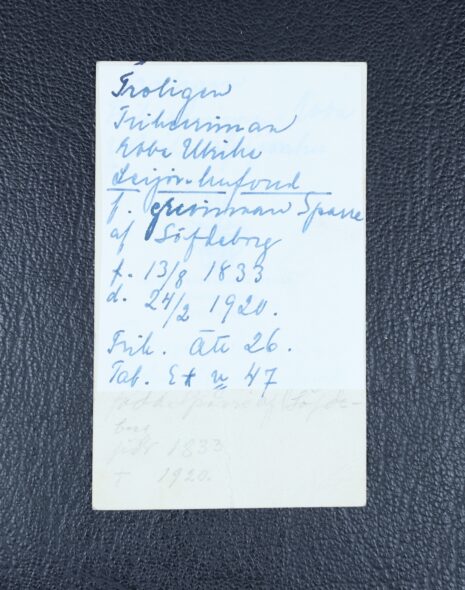 Troligen
Friherrinnan
Ebbe Ulrike
Leijonhufvud
f. grevinnan Sparre
af Söfdeborg
f. 13/8 1833
d. 24/2 1920.
Frih. ätt 26.
Tab. Ex u 47
Söfde-
borg
född 1833
+ 1920.